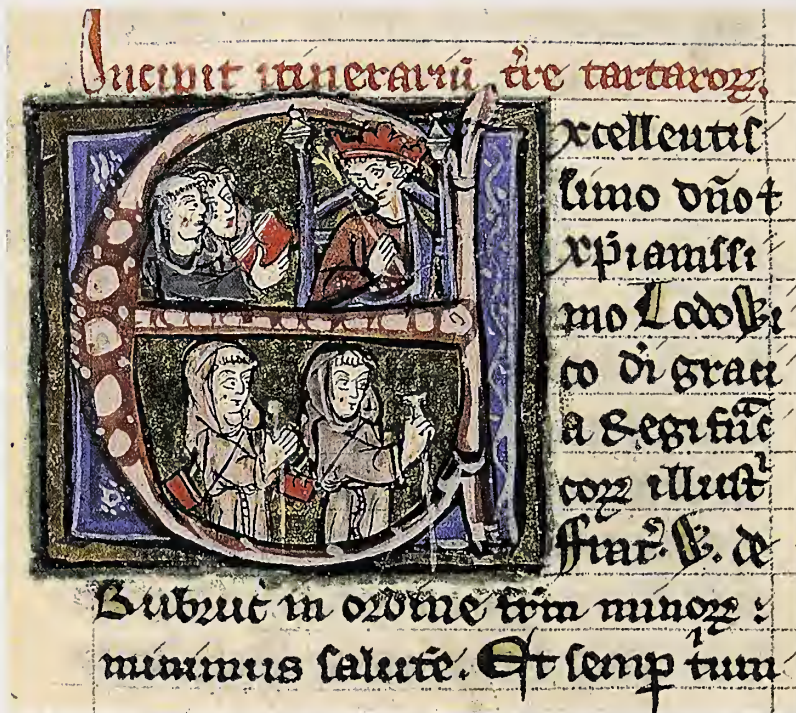 Incipit itinerariū tr̄e tartaroꝝ.
Excellentis
simo dn̄o ⁊
xp̄ianissi
mo Lodowi
co di gratī
a Regi franc
coꝝ illust
frater W. de
Rubruc in ordine frm̄ minoꝝ:
minimus salutē. Et semp tium